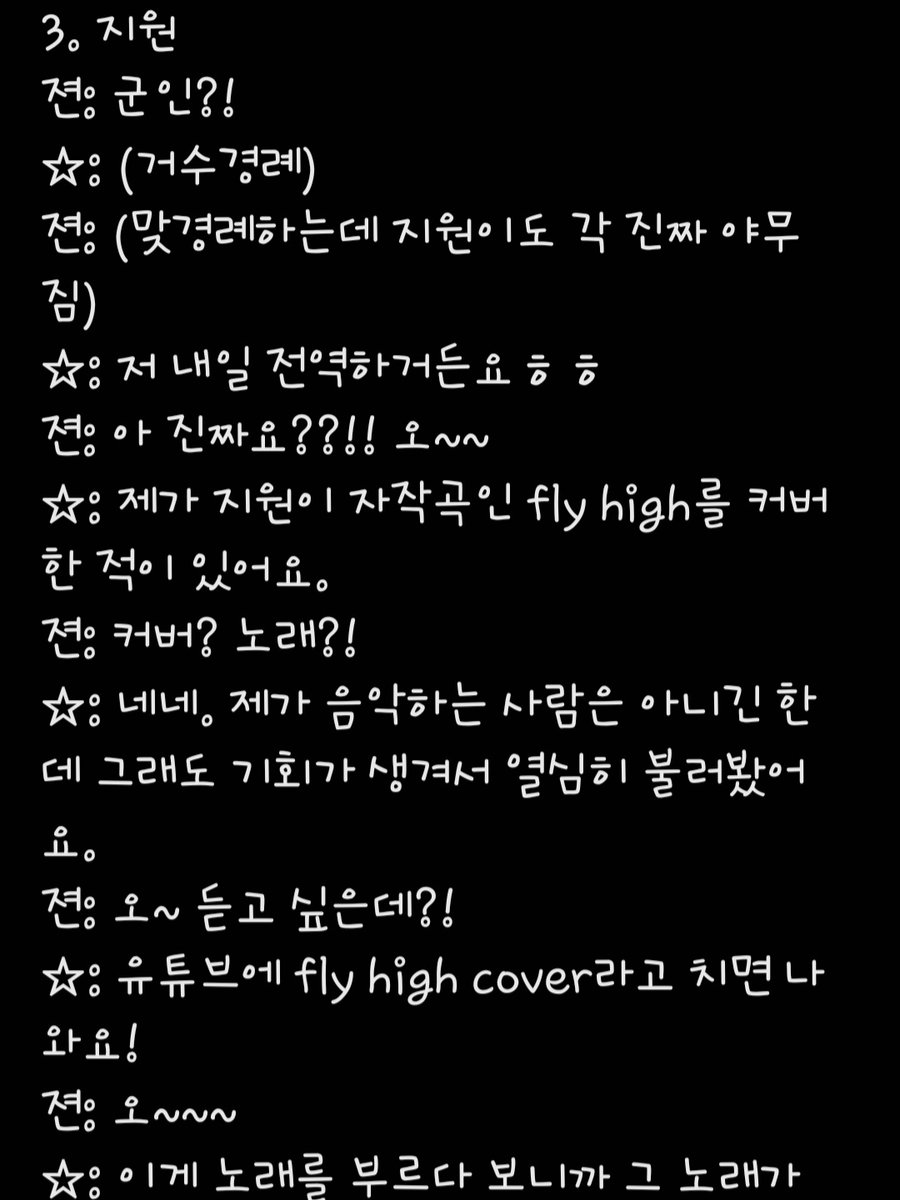 3. 지원
젼: 군인?!
☆: (거수경례)
젼: (맞경례하는데 지원이도 각 진짜 야무
짐)
☆: 저 내일 전역하거든요 ㅎ ㅎ
젼: 아 진짜요??!! 오~~
☆: 제가 지원이 자작곡인 fly high를 커버
한 적이 있어요.
젼: 커버? 노래?!
☆: 네네. 제가 음악하는 사람은 아니긴 한
데 그래도 기회가 생겨서 열심히 불러봤어
요.
젼: 오~ 듣고 싶은데?!
☆: 유튜브에 fly high cover라고 치면 나
와요!
젼: 오~~~
☆: 이게 노래를 부르다 보니까 그 노래가